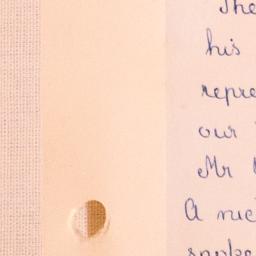 The
his
repre
our
Mr
A nic
spoke